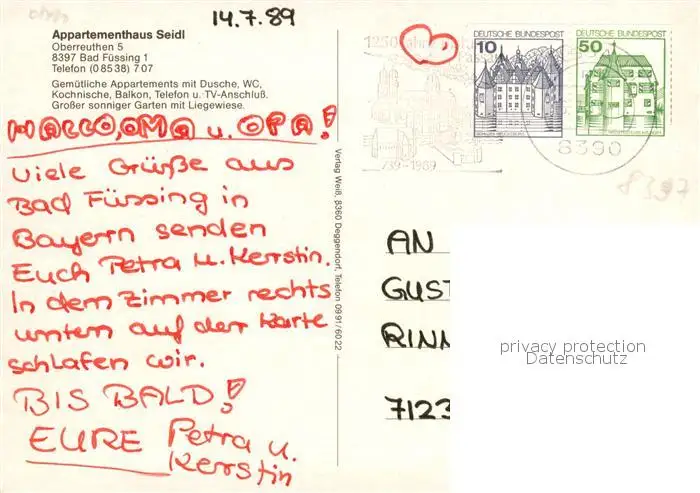 14.7.89
Appartementhaus Seidl
Oberreuthen 5
8397 Bad Füssing 1
Telefon (0 85 38) 7 07
Gemütliche Appartements mit Dusche, WC,
Kochnische, Balkon, Telefon u. TV-Anschluß.
Großer sonniger Garten mit Liegewiese.
HALLO, OMA u. OPA!
Viele Grüße aus
Bad Füssing in
Bayern senden
Euch Petra u. Kerstin.
In dem Zimmer rechts
unten auf der Karte
schlafen wir.
BIS BALD!
EURE Petra u.
Kerstin
Verlag Weiß, 8360 Deggendorf, Telefon 09 91/60 22
1250 Jahre
739-1989
10 DEUTSCHE BUNDESPOST
50 DEUTSCHE BUNDESPOST
8390
8397
AN
GUST
RINN
7123
privacy protection
Datenschutz